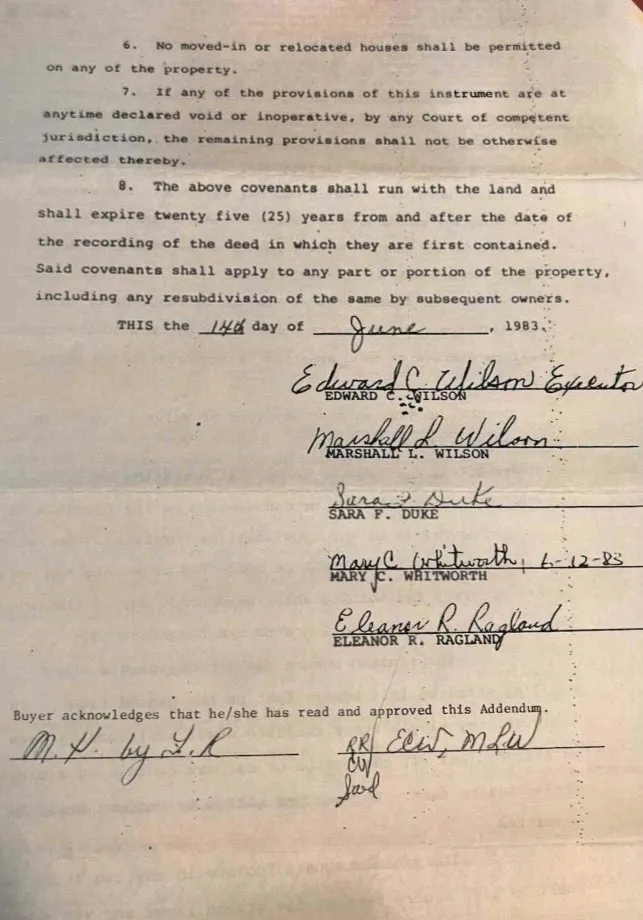 6. No moved-in or relocated houses shall be permitted
on any of the property.
7. If any of the provisions of this instrument are at
anytime declared void or inoperative, by any Court of competent
jurisdiction, the remaining provisions shall not be otherwise
affected thereby.
8. The above covenants shall run with the land and
shall expire twenty five (25) years from and after the date of
the recording of the deed in which they are first contained.
Said covenants shall apply to any part or portion of the property,
including any resubdivision of the same by subsequent owners.
THIS the 14th day of June, 1983.
Edward C. Wilson Executor
EDWARD C. WILSON
Marshall L. Wilson
MARSHALL L. WILSON
Sara F. Duke
SARA F. DUKE
Mary C. Whitworth, 6-12-83
MARY C. WHITWORTH
Eleanor R. Ragland
ELEANOR R. RAGLAND
Buyer acknowledges that he/she has read and approved this Addendum.
M. H. by ECW, MLW